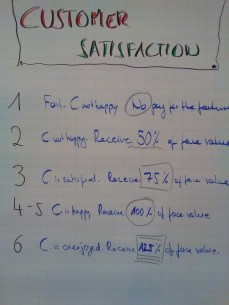 CUSTOMER
SATISFACTION
1 Fail. C not happy No pay for the feature
2 C unhappy. Receive 50% of face value
3 C is satisfied. Receive 75% of face value
4-5 C is happy. Receive 100% of face value
6 C is overjoyed. Receive 125% of face value.